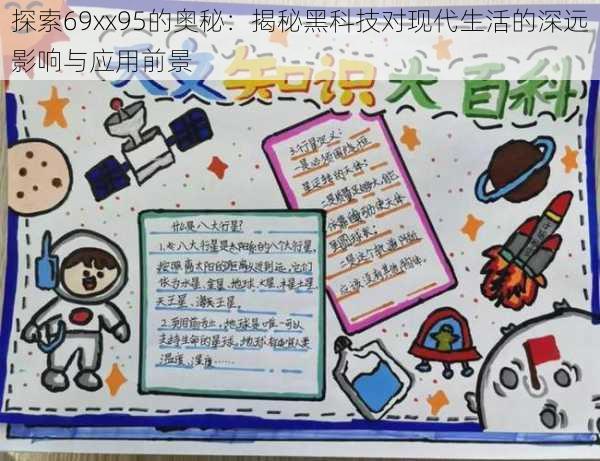 探索69xx95的奥秘：揭秘黑科技对现代生活的深远
影响与应用前景
天文知识大百科
什么是八大行星?
1.八大行星是太阳系的八个大行星,
按照离太阳的距离从近到远,它们
依次为水星、金星、地球、火星、木星、土星、
天王星、海王星。
2.到目前为止,地球是唯一可以
支持生命的星球,
温度、湿度……
3.行星定义:
一是必须围绕恒
星运转的天体;
二是质量足够大,能